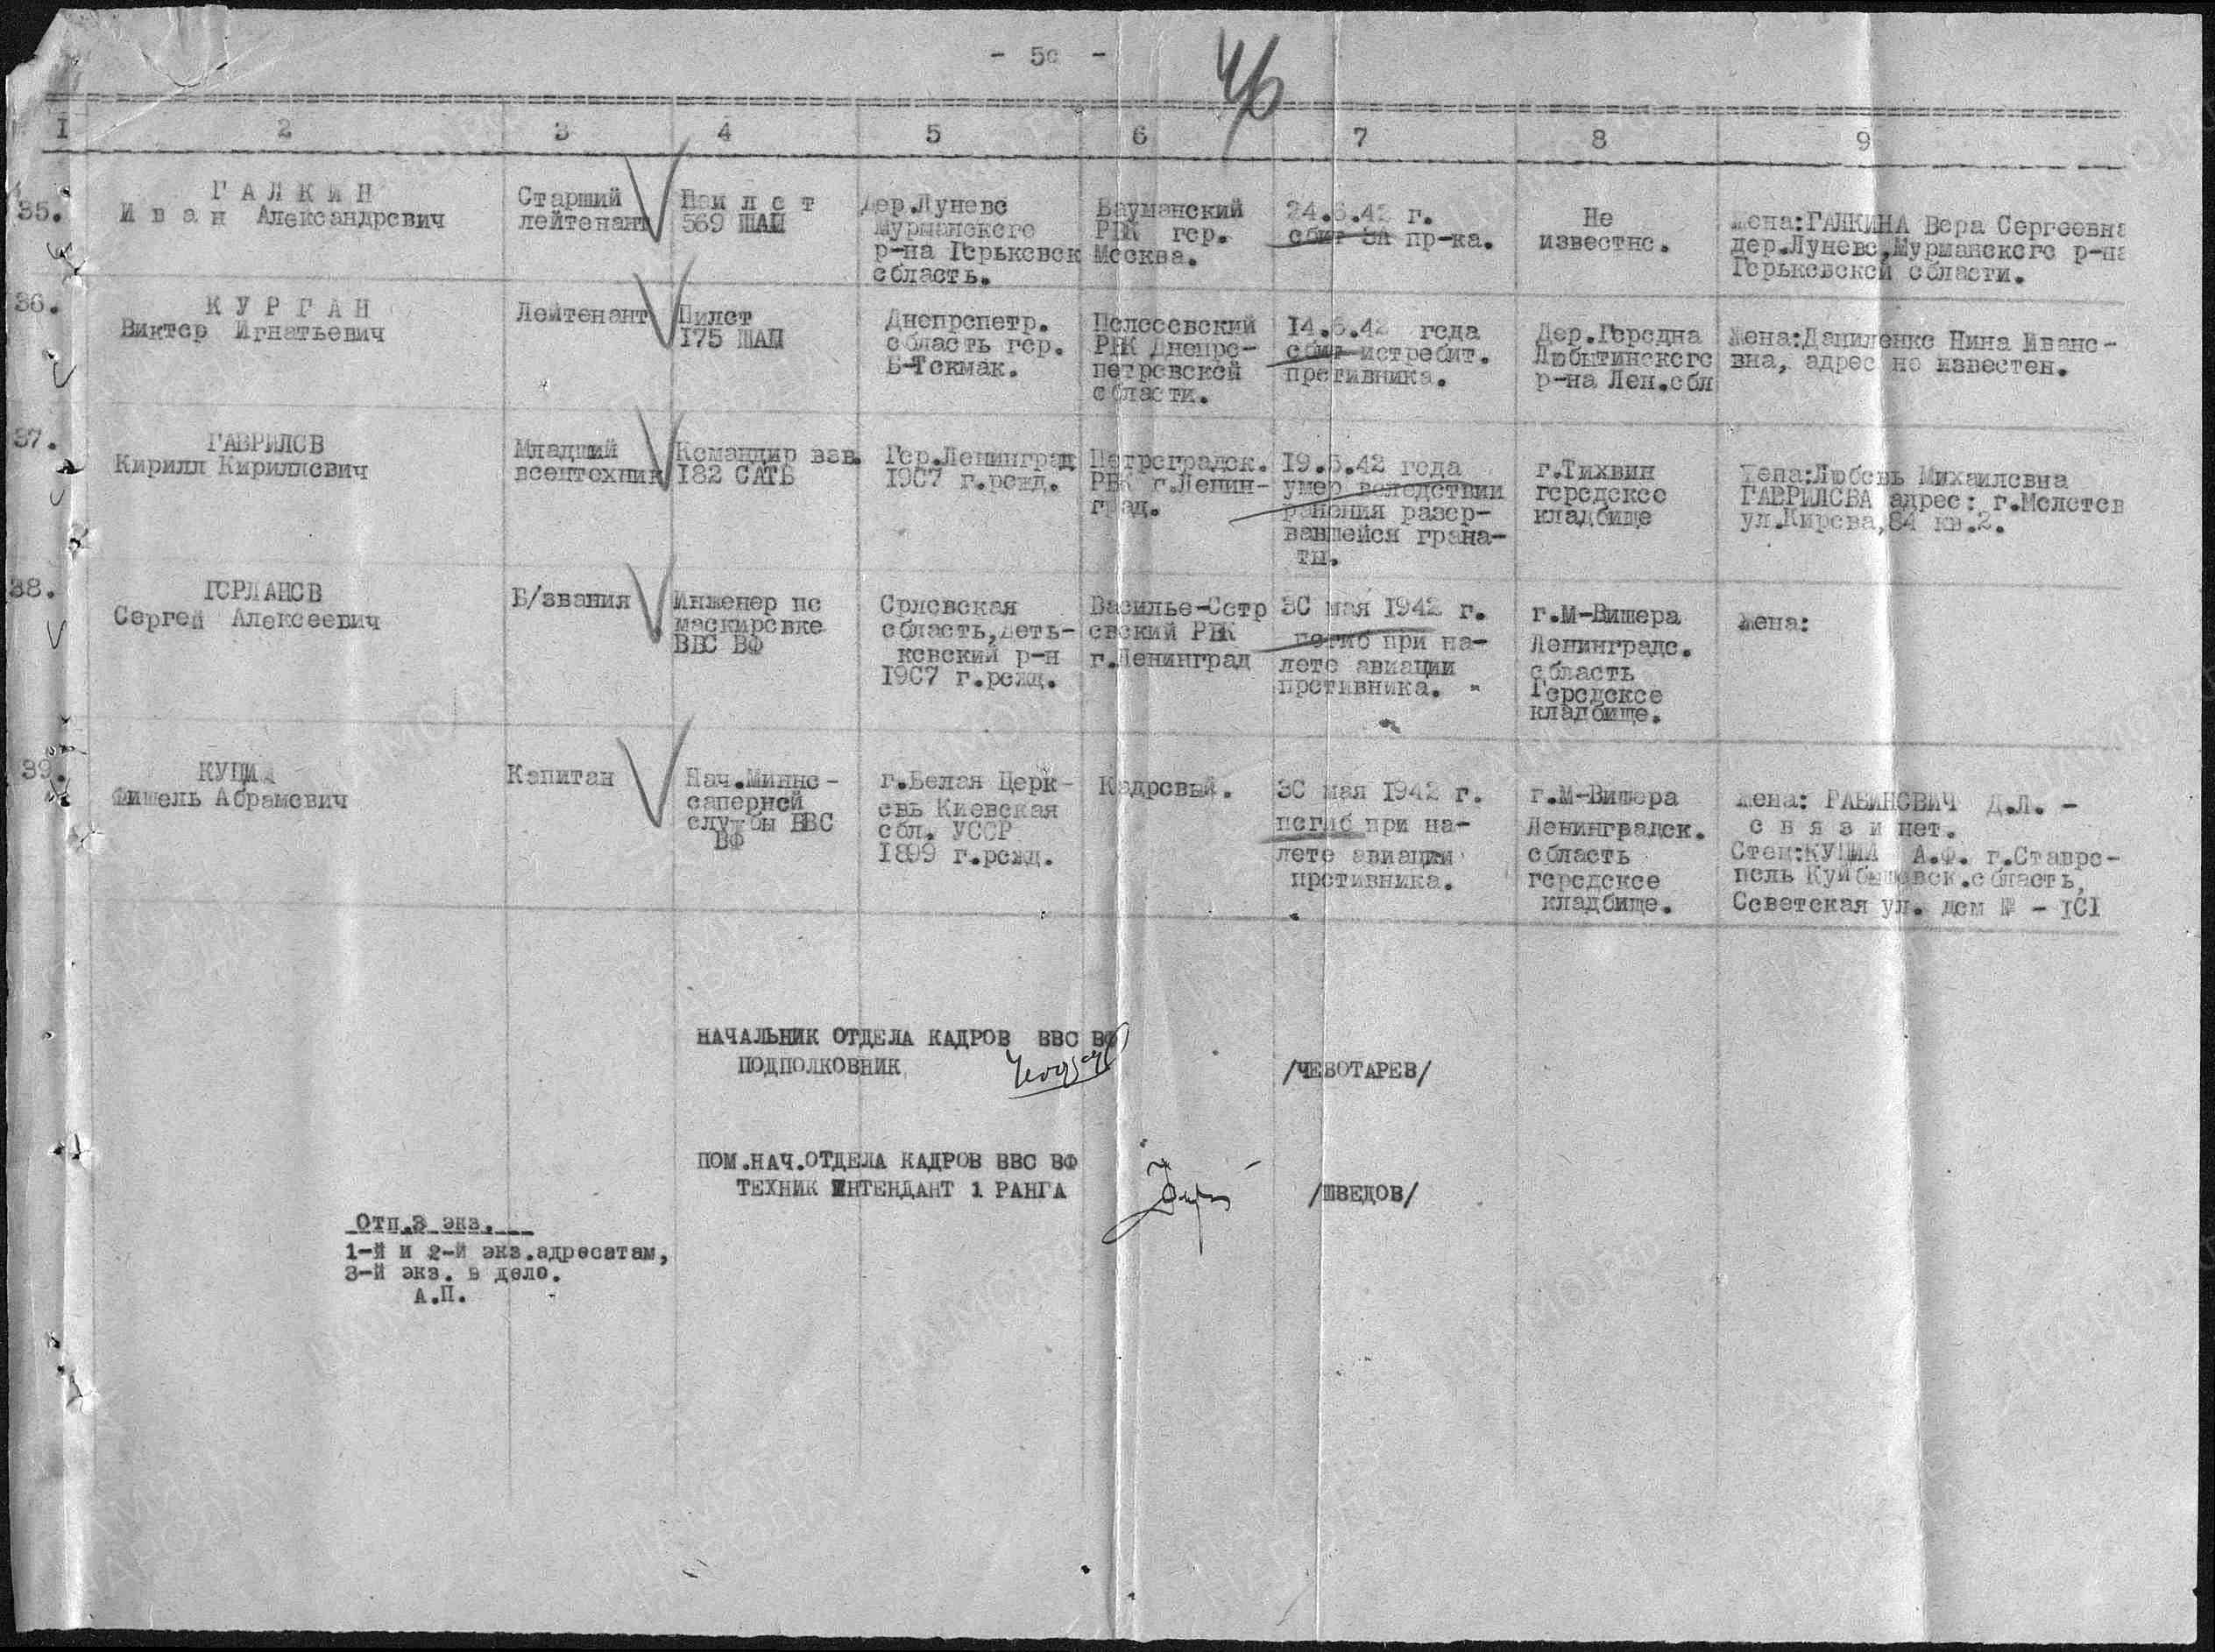 - 5с -
46
I 2 3 4 5 6 7 8 9
35.
Г А Л К И Н
И в а н Александрович
Старший
лейтенант
П и л о т
569 ШАП
Дер.Лунево
Мурманского
р-на Горьковск
область.
Бауманский
РВК гор.
Москва.
24.5.42 г.
сбит ЗА пр-ка.
Не
известно.
Жена:ГАЛКИНА Вера Сергеевна
дер.Лунево,Мурманского р-на
Горьковской области.
36.
К У Р Г А Н
Виктор Игнатьевич
Лейтенант
Пилот
175 ШАП
Днепропетр.
область гор.
Б-Токмак.
РВК Днепро-
петровской
области.
14.5.42 года
сбит истребит.
противника.
Дер.Городна
Любытинского
р-на Лен.обл
Жена:Даниленко Нина Ивано-
вна, адрес не известен.
37.
ГАВРИЛОВ
Кириллович Кирилл
Младший
воентехник
Командир взв.
182 САТБ
Гор.Ленинград
1907 г.рожд.
Петроградск.
РВК г.Ленин-
град.
19.5.42 года
умер вследствии
ранения разор-
вавшейся грана-
ты.
г.Тихвин
городское
кладбище
Жена:Любовь Михаиловна
ГАВРИЛОВА адрес: г.Молотов
ул.Кирова,84 кв.2.
38.
ГОРЛАНОВ
Сергей Алексеевич
Б/звания
Инженер по
маскировке
ВВС ВФ
Орловская
область,Деть-
ковский р-н
1907 г.рожд.
Василье-Остр
овский РВК
г.Ленинград
30 мая 1942 г.
погиб при на-
лете авиации
противника.
г.М-Вишера
Ленинградс.
область
Городское
кладбище.
Жена:
39.
КУЦИД
Фишель Абрамович
Капитан
Нач.Минно-
саперной
службы ВВС
ВФ
г.Белая Церк-
овь Киевская
обл. УССР
1899 г.рожд.
Кадровый.
30 мая 1942 г.
погиб при на-
лете авиации
противника.
г.М-Вишера
Ленинградск.
область
городское
кладбище.
Жена: РАБИНОВИЧ Д.Л. -
с в я з и нет.
Отец:КУЦИД А.Ф. г.Ставро-
поль Куйбышевск.область,
Советская ул. дом № - 101
НАЧАЛЬНИК ОТДЕЛА КАДРОВ ВВС ВФ
ПОДПОЛКОВНИК /ЧЕБОТАРЕВ/
ПОМ.НАЧ.ОТДЕЛА КАДРОВ ВВС ВФ
ТЕХНИК ИНТЕНДАНТ 1 РАНГА /ШВЕДОВ/
Отп.3 экз.
1-й и 2-й экз.адресатам,
3-й экз. в дело.
А.П.